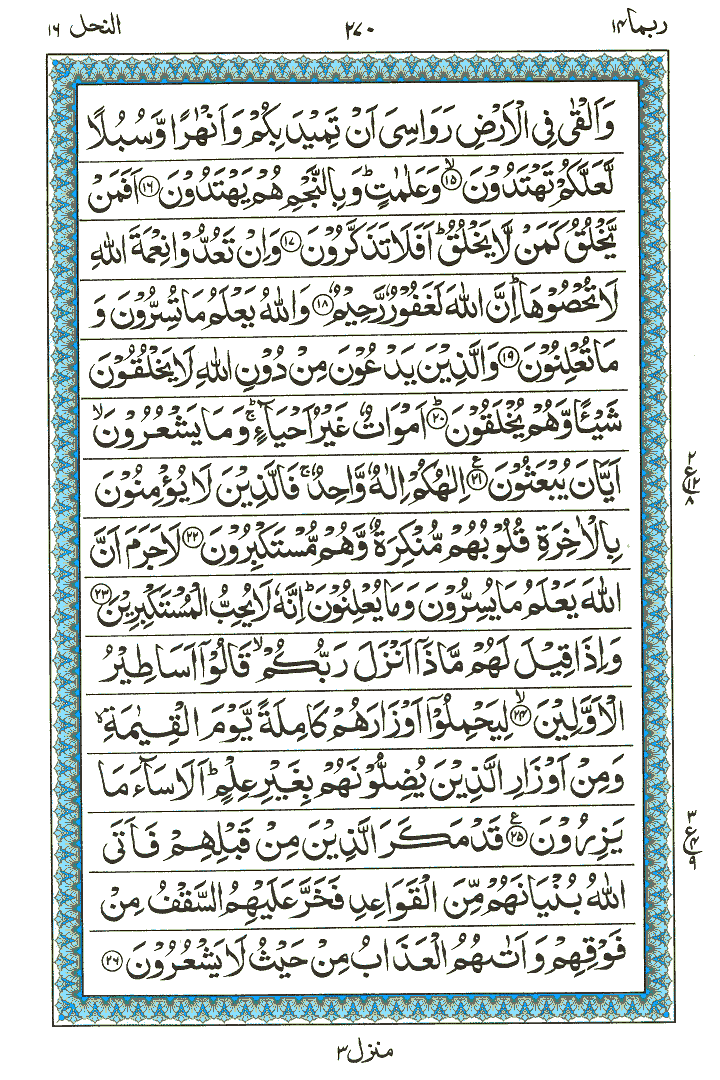 ربما ١٤
٢٧٠
النحل ١٦
وَاَلْقٰى فِى الْاَرْضِ رَوَاسِىَ اَنْ تَمِيْدَ بِكُمْ وَاَنْهٰرًا وَّسُبُلًا
لَّعَلَّكُمْ تَهْتَدُوْنَ ۙ‏﴿۱۵﴾ وَعَلٰمٰتٍ ؕ وَبِالنَّجْمِ هُمْ يَهْتَدُوْنَ ﴿۱۶﴾ اَفَمَنْ
يَّخْلُقُ كَمَنْ لَّا يَخْلُقُ ؕ اَفَلَا تَذَكَّرُوْنَ ﴿۱۷﴾ وَاِنْ تَعُدُّوْا نِعْمَةَ اللّٰهِ
لَا تُحْصُوْهَا ؕ اِنَّ اللّٰهَ لَغَفُوْرٌ رَّحِيْمٌ ﴿۱۸﴾ وَاللّٰهُ يَعْلَمُ مَا تُسِرُّوْنَ وَ
مَا تُعْلِنُوْنَ ﴿۱۹﴾ وَالَّذِيْنَ يَدْعُوْنَ مِنْ دُوْنِ اللّٰهِ لَا يَخْلُقُوْنَ
شَيْـًٔا وَّهُمْ يُخْلَقُوْنَ ؕ‏﴿۲۰﴾ اَمْوَاتٌ غَيْرُ اَحْيَآءٍ ۚ وَمَا يَشْعُرُوْنَ ۙ
اَيَّانَ يُبْعَثُوْنَ ﴿۲۱﴾ ع اِلٰهُكُمْ اِلٰهٌ وَّاحِدٌ ۚ فَالَّذِيْنَ لَا يُؤْمِنُوْنَ
بِالْاٰخِرَةِ قُلُوْبُهُمْ مُّنْكِرَةٌ وَّهُمْ مُّسْتَكْبِرُوْنَ ﴿۲۲﴾ لَا جَرَمَ اَنَّ
اللّٰهَ يَعْلَمُ مَا يُسِرُّوْنَ وَمَا يُعْلِنُوْنَ ؕ اِنَّهٗ لَا يُحِبُّ الْمُسْتَكْبِرِيْنَ ﴿۲۳﴾
وَاِذَا قِيْلَ لَهُمْ مَّاذَاۤ اَنْزَلَ رَبُّكُمْ ۙ قَالُوْۤا اَسَاطِيْرُ
الْاَوَّلِيْنَ ۙ‏﴿۲۴﴾ لِيَحْمِلُوْۤا اَوْزَارَهُمْ كَامِلَةً يَّوْمَ الْقِيٰمَةِ ۙ
وَمِنْ اَوْزَارِ الَّذِيْنَ يُضِلُّوْنَهُمْ بِغَيْرِ عِلْمٍ ؕ اَلَا سَآءَ مَا
يَزِرُوْنَ ﴿۲۵﴾ ع قَدْ مَكَرَ الَّذِيْنَ مِنْ قَبْلِهِمْ فَاَتَى
اللّٰهُ بُنْيَانَهُمْ مِّنَ الْقَوَاعِدِ فَخَرَّ عَلَيْهِمُ السَّقْفُ مِنْ
فَوْقِهِمْ وَاَتٰٮهُمُ الْعَذَابُ مِنْ حَيْثُ لَا يَشْعُرُوْنَ ﴿۲۶﴾
٢
ع ١٢
٨
٣
ع ٤
٩
منزل ٣